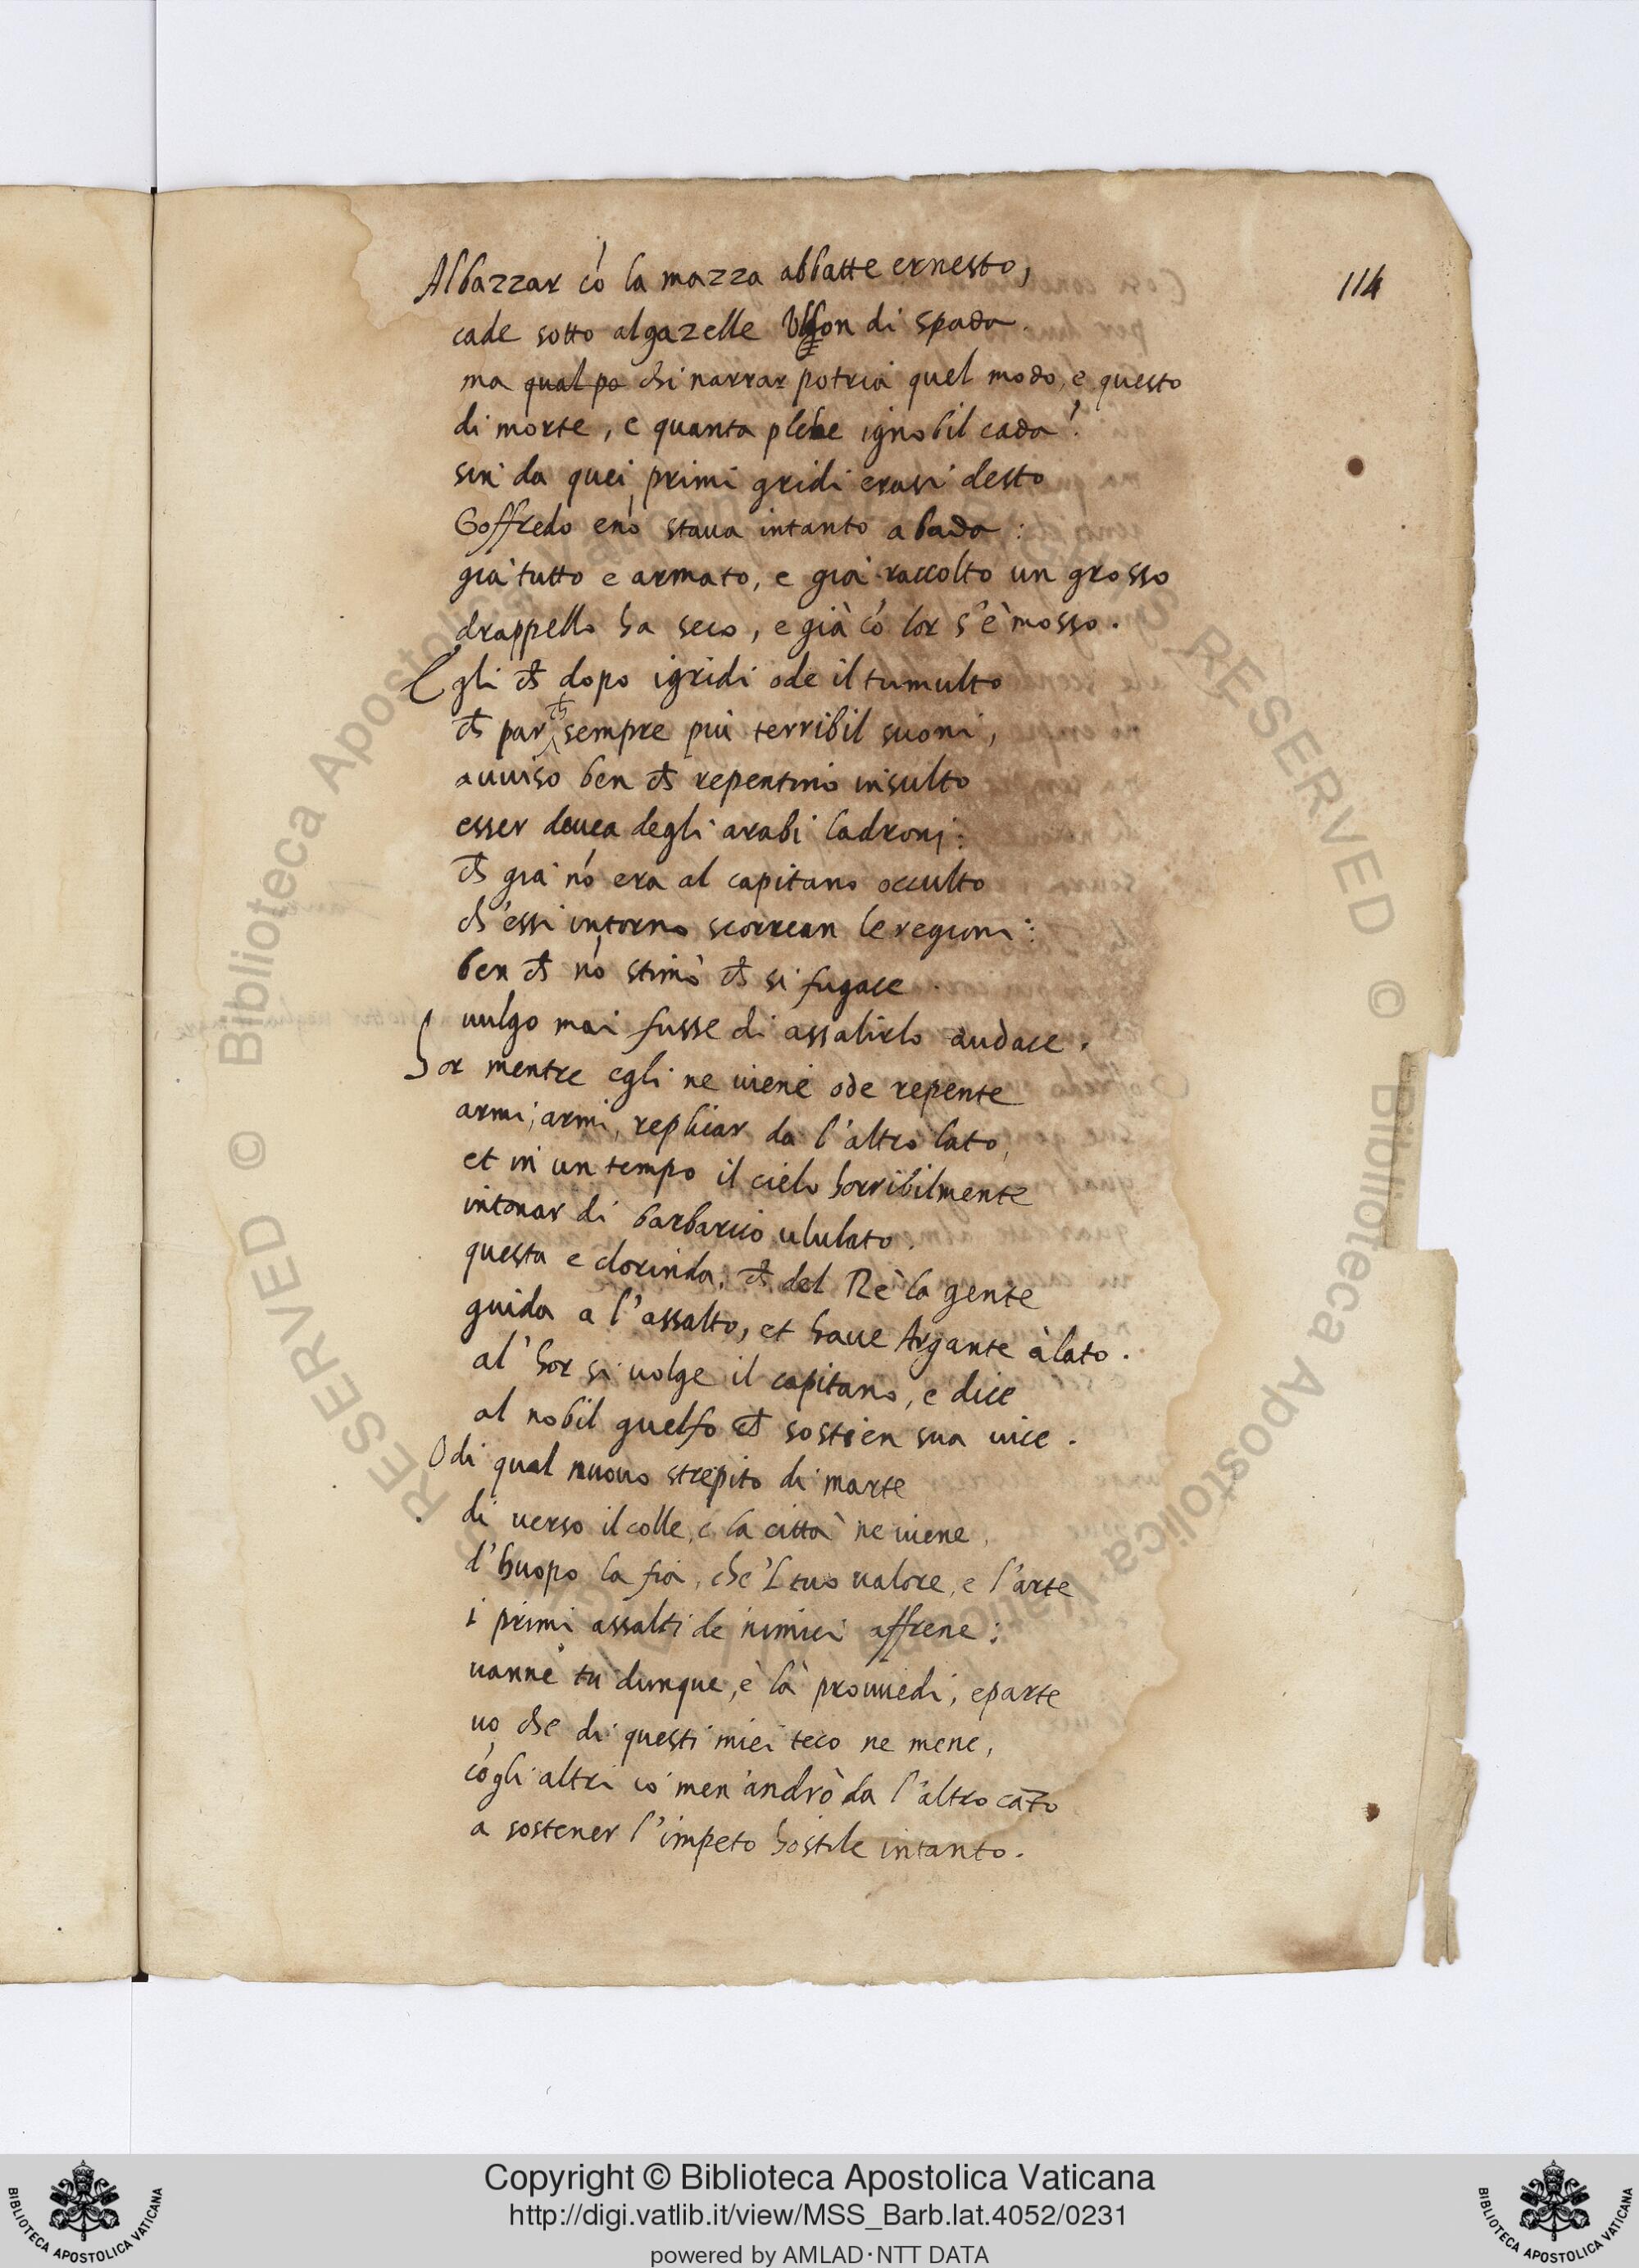 114
Albazzar có la mazza abbatte ernesto,
cade sotto algazelle di spada.
ma qual po chi narrar potria quel modo, e questo
di morte, e quanta plebe ignobil cada?
sin da quei primi gridi erasi desto
Goffredo enó staua intanto a bada:
gia tutto e armato, e già raccolto un grosso
drappello ha seco, e già có lor s'è mosso.
Egli ch dopo igridi ode il tumulto
ch par ch sempre più terribil suoni,
auuiso ben ch repentino insulto
esser deuea degli arabi ladroni:
ch gia nó era al capitano occulto
ch'essi intorno scorrean le regioni:
ben ch nó stimò ch si fugace
uulgo mai fusse di assalirlo audace.
Hor mentre egli ne uiene ode repente
armi, armi, replicar da l'altro lato,
et in un tempo il cielo horribilmente
intonar di barbarico ululato.
questa e clorinda, ch del Rè la gente
guida a l'assalto, et haue Argante àlato.
al'hor si uolge il capitano, e dice
al nobil guelfo ch sostien sua uice.
Odi qual nuouo strepito di marte
di uerso il colle, e la città ne uiene,
d'huopo la fia, che'l tuo ualore, e l'arte
i primi assalti de nimici affrene:
uanne tu dunque, è là prouuedi, eparte
uo che di questi miei teco ne mene,
cógli altri io men'andrò da l'altro cãto
a sostener l'impeto hostile intanto.
© Biblioteca Apostolica Vaticana
RIGHTS RESERVED © Biblioteca Apostolica Vaticana
RESERVED
Copyright © Biblioteca Apostolica Vaticana
http://digi.vatlib.it/view/MSS_Barb.lat.4052/0231
powered by AMLAD·NTT DATA
BIBLIOTECA APOSTOLICA VATICANA
BIBLIOTECA APOSTOLICA VATICANA